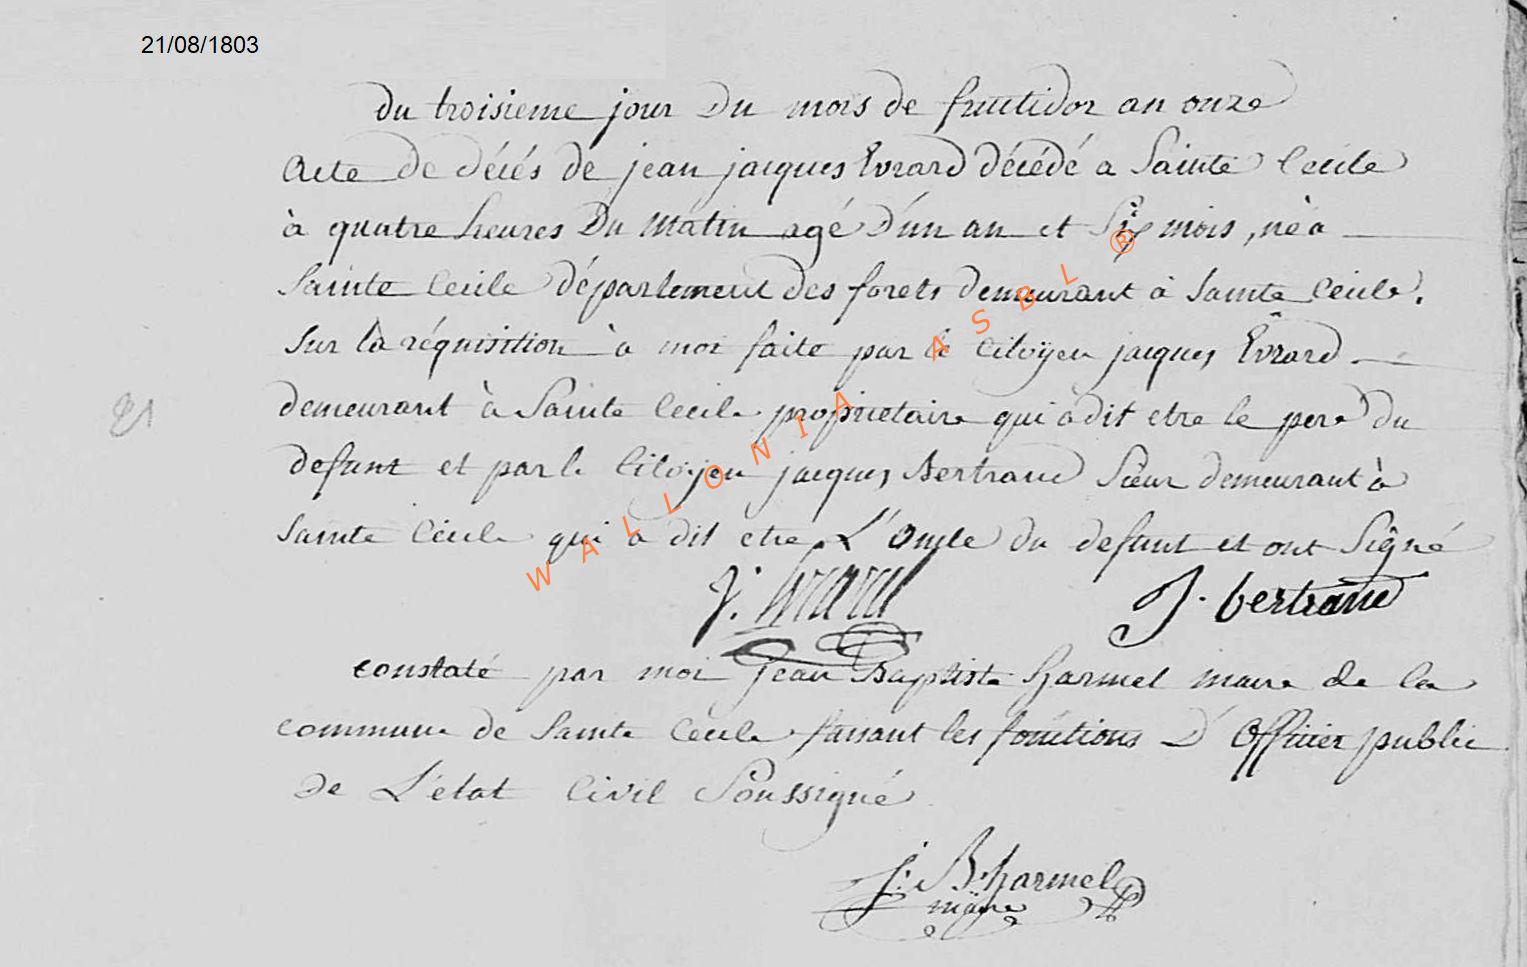 21/08/1803
Du troisieme jour Du mois de fructidor an onze
Acte de décés de jean jacques Evrard décédé a Sainte Cecile
à quatre heures Du Matin agé D'un an et Six mois, né a
Sainte Cecile département des forets demeurant à Sainte Cecile.
Sur la réquisition à moi faite par le Citoÿen jacques Evrard
demeurant à Sainte Cecile propriétaire qui a dit etre le pere du
defunt et par le Citoÿen jacques Bertrand demeurant à
Sainte Cecile qui a dit etre L'Oncle du defunt et ont Signé
J. Evrard J. bertrand
21
constaté par moi Jean Baptiste Harmel maire de la
commune de Sainte Cecile faisant les fonctions D'Officier public
de L'état Civil Soussigné
J. B. harmel
maire
WALLONIA ASBL ®